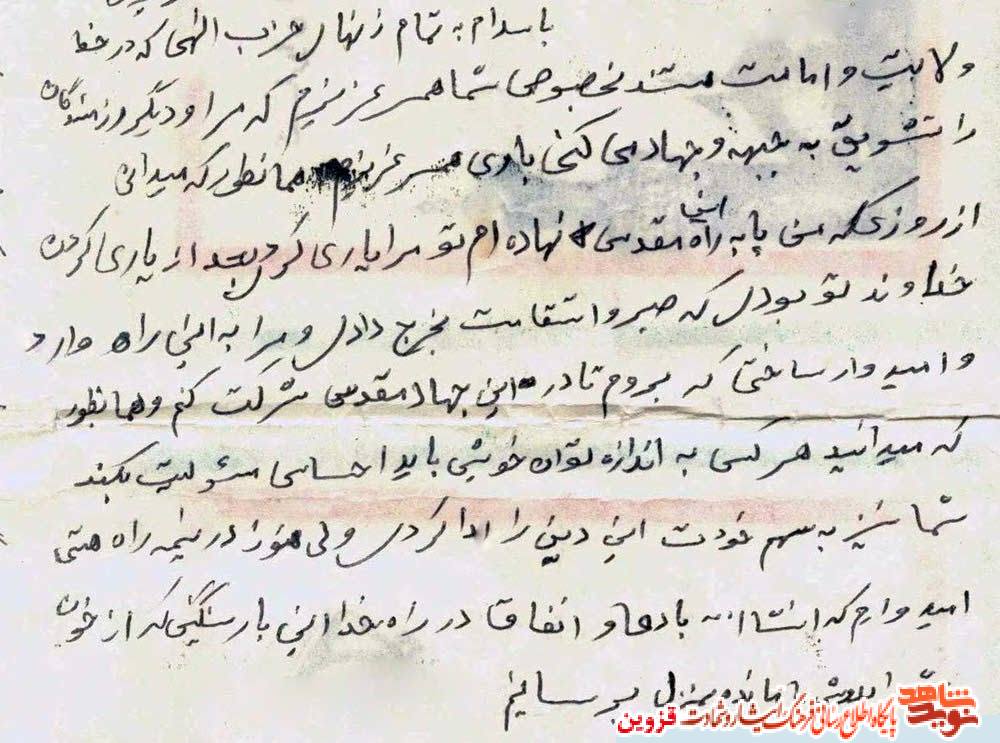 با سلام به تمام زنهای حزب الهی که در خط
ولایت و امامت هستند بخصوص شما همسر عزیزم که مرا و دیگر رزمندگان
را تشویق به جبهه و جهاد می کنی باری همسر عزیزم همانطور که میدانی
از روزی که من پا به راه این مقدس نهاده ام تو مرا یاری کردی بعد از یاری کردن
خداوند تو بودی که صبر و استقامت بخرج دادی و مرا به این راه وارد
و امیدوار ساختی که بروم تا در این جهاد مقدس شرکت کنم و همانطور
که میدانید هر کس به اندازه توان خویش باید احساس مسئولیت بکند
شما نیز به سهم خودت این دین را ادا کردی ولی هنوز در نیمه راه هستی
امیدوارم که انشاا... با دعا و انفاق در راه خدا این بار سنگینی که از خون
مانده بمنزل برسانیم
نوید شاهد
پایگاه اطلاع رسانی فرهنگ ایثار و شهادت قزوین